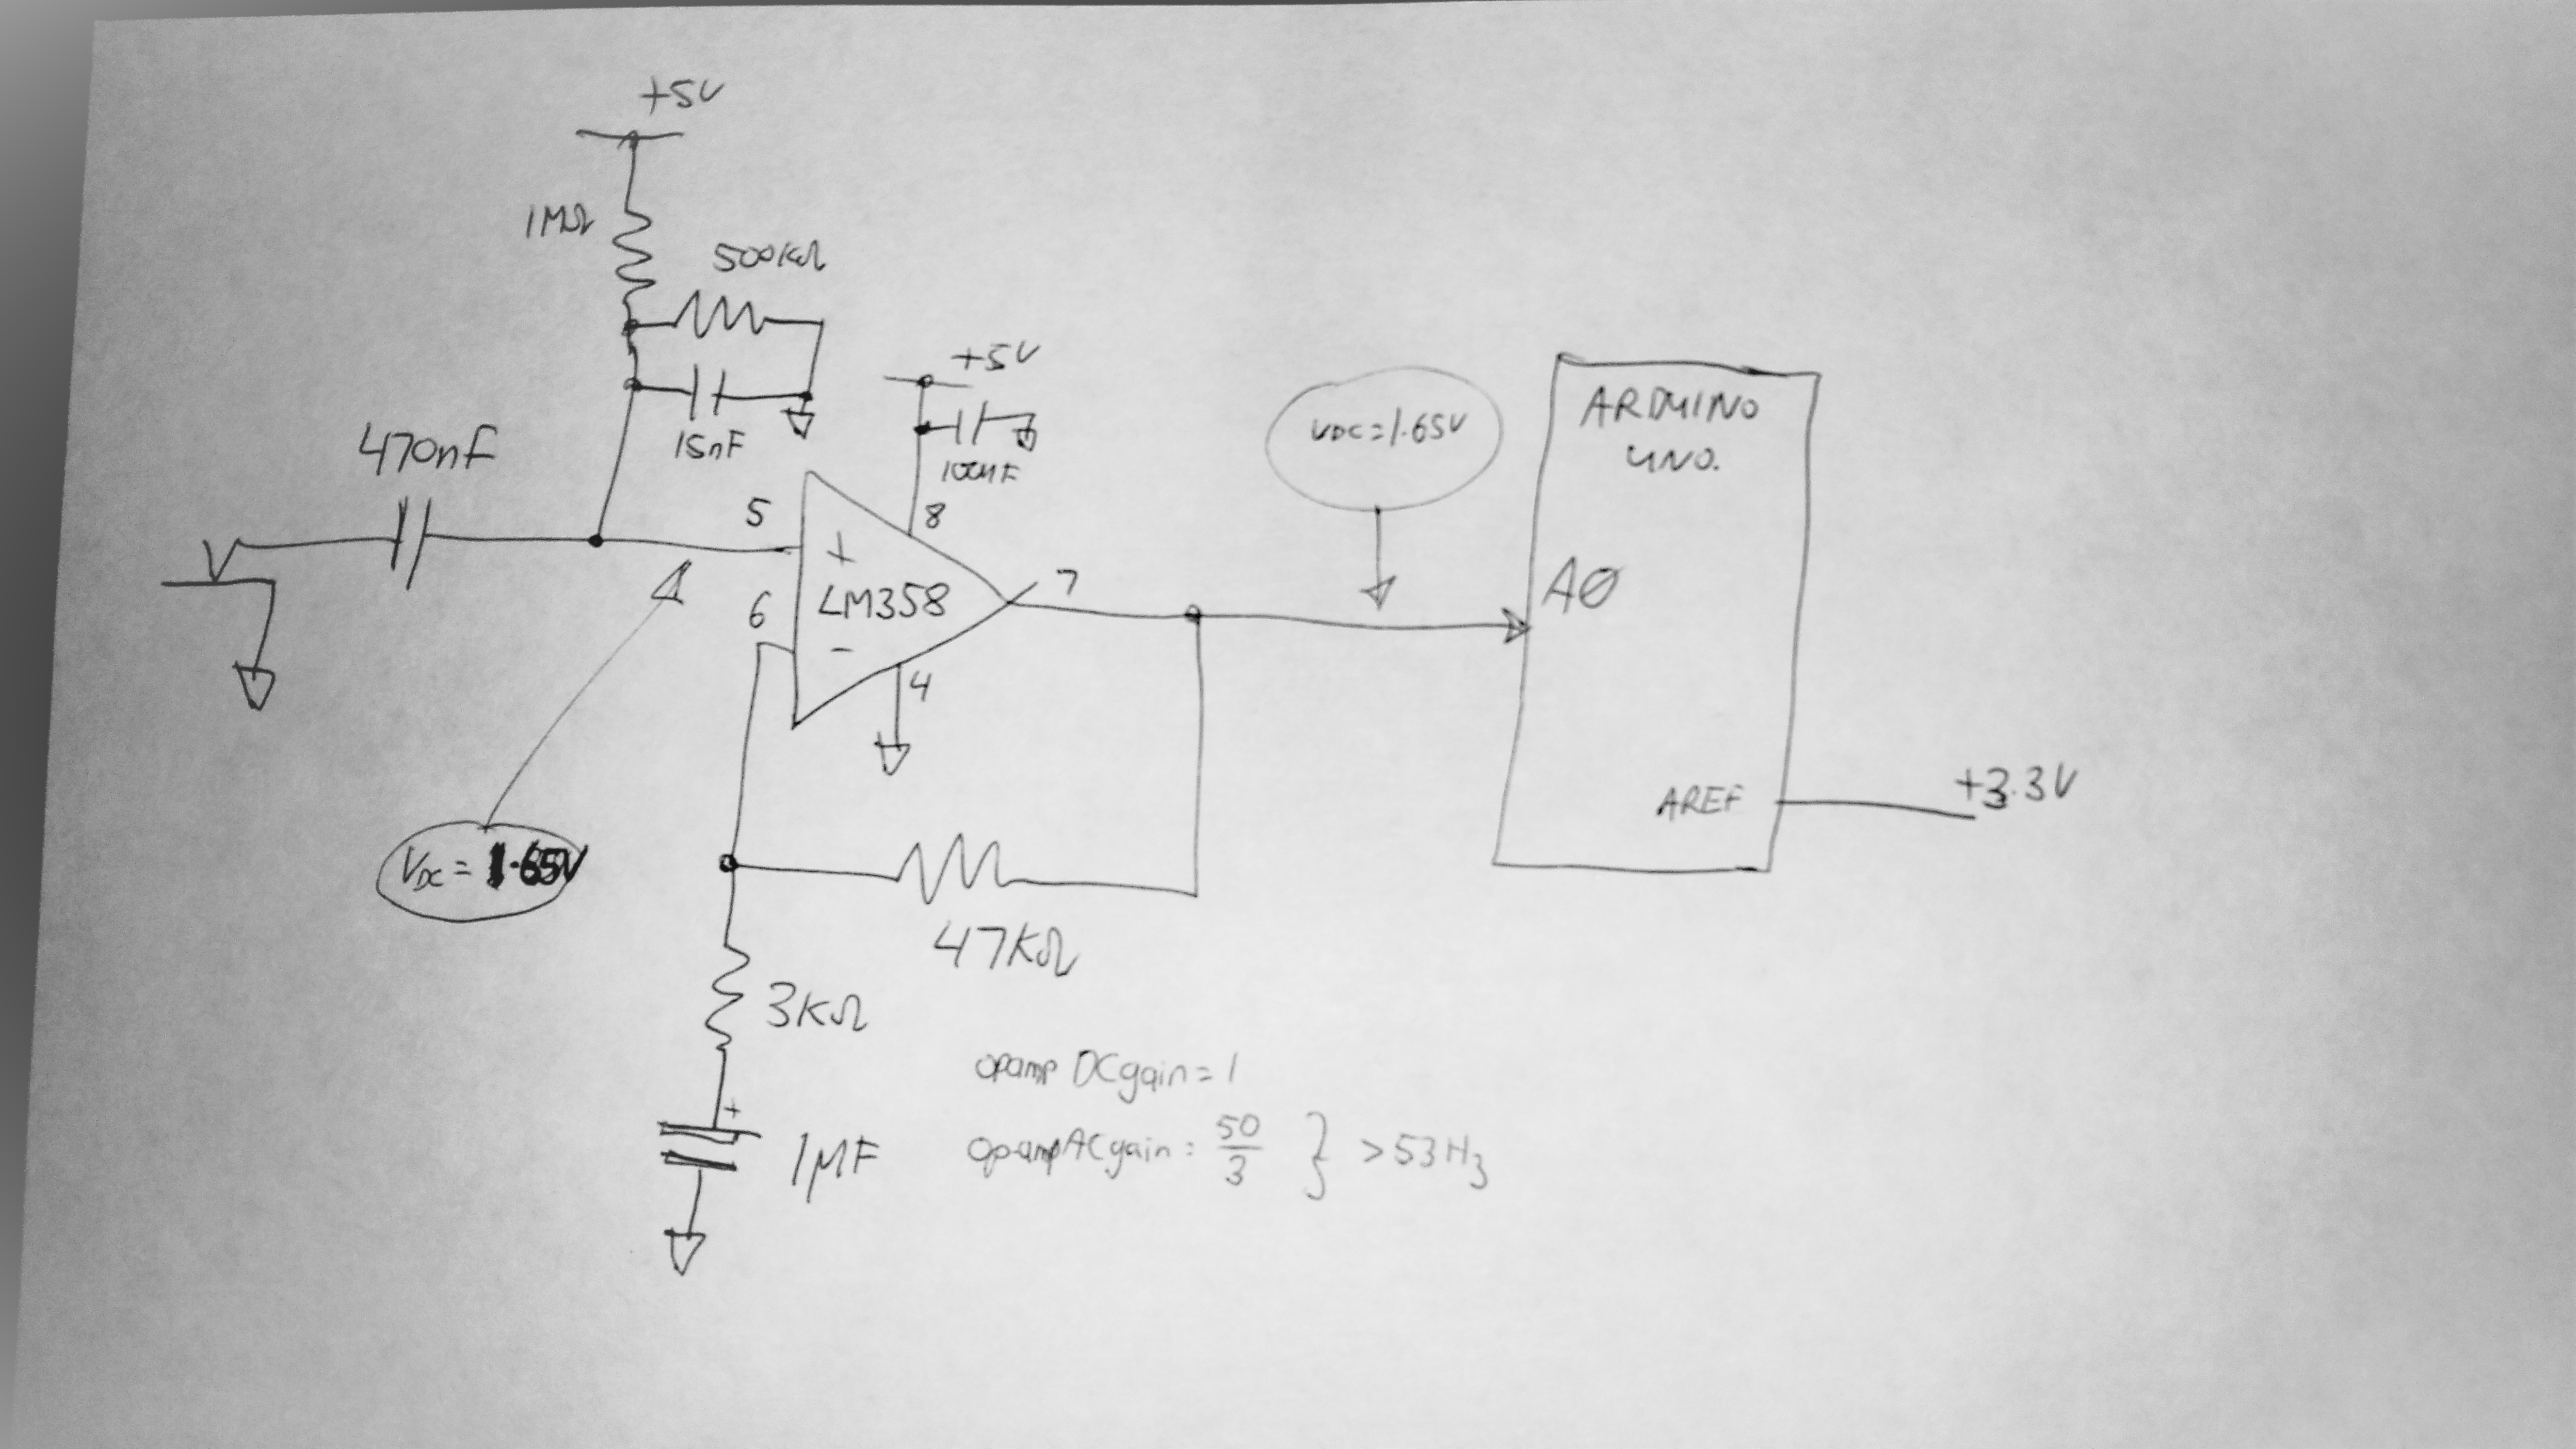 +5V
1MΩ
500KΩ
+5V
470nF
15nF
VDC=1.65V
ARDUINO
UNO.
5
8
+
LM358
7
A0
6
-
4
AREF
+3.3V
VDC = 1.65V
47KΩ
3KΩ
opamp DCgain = 1
+
1μF
opampACgain = 50/3 } >53Hz